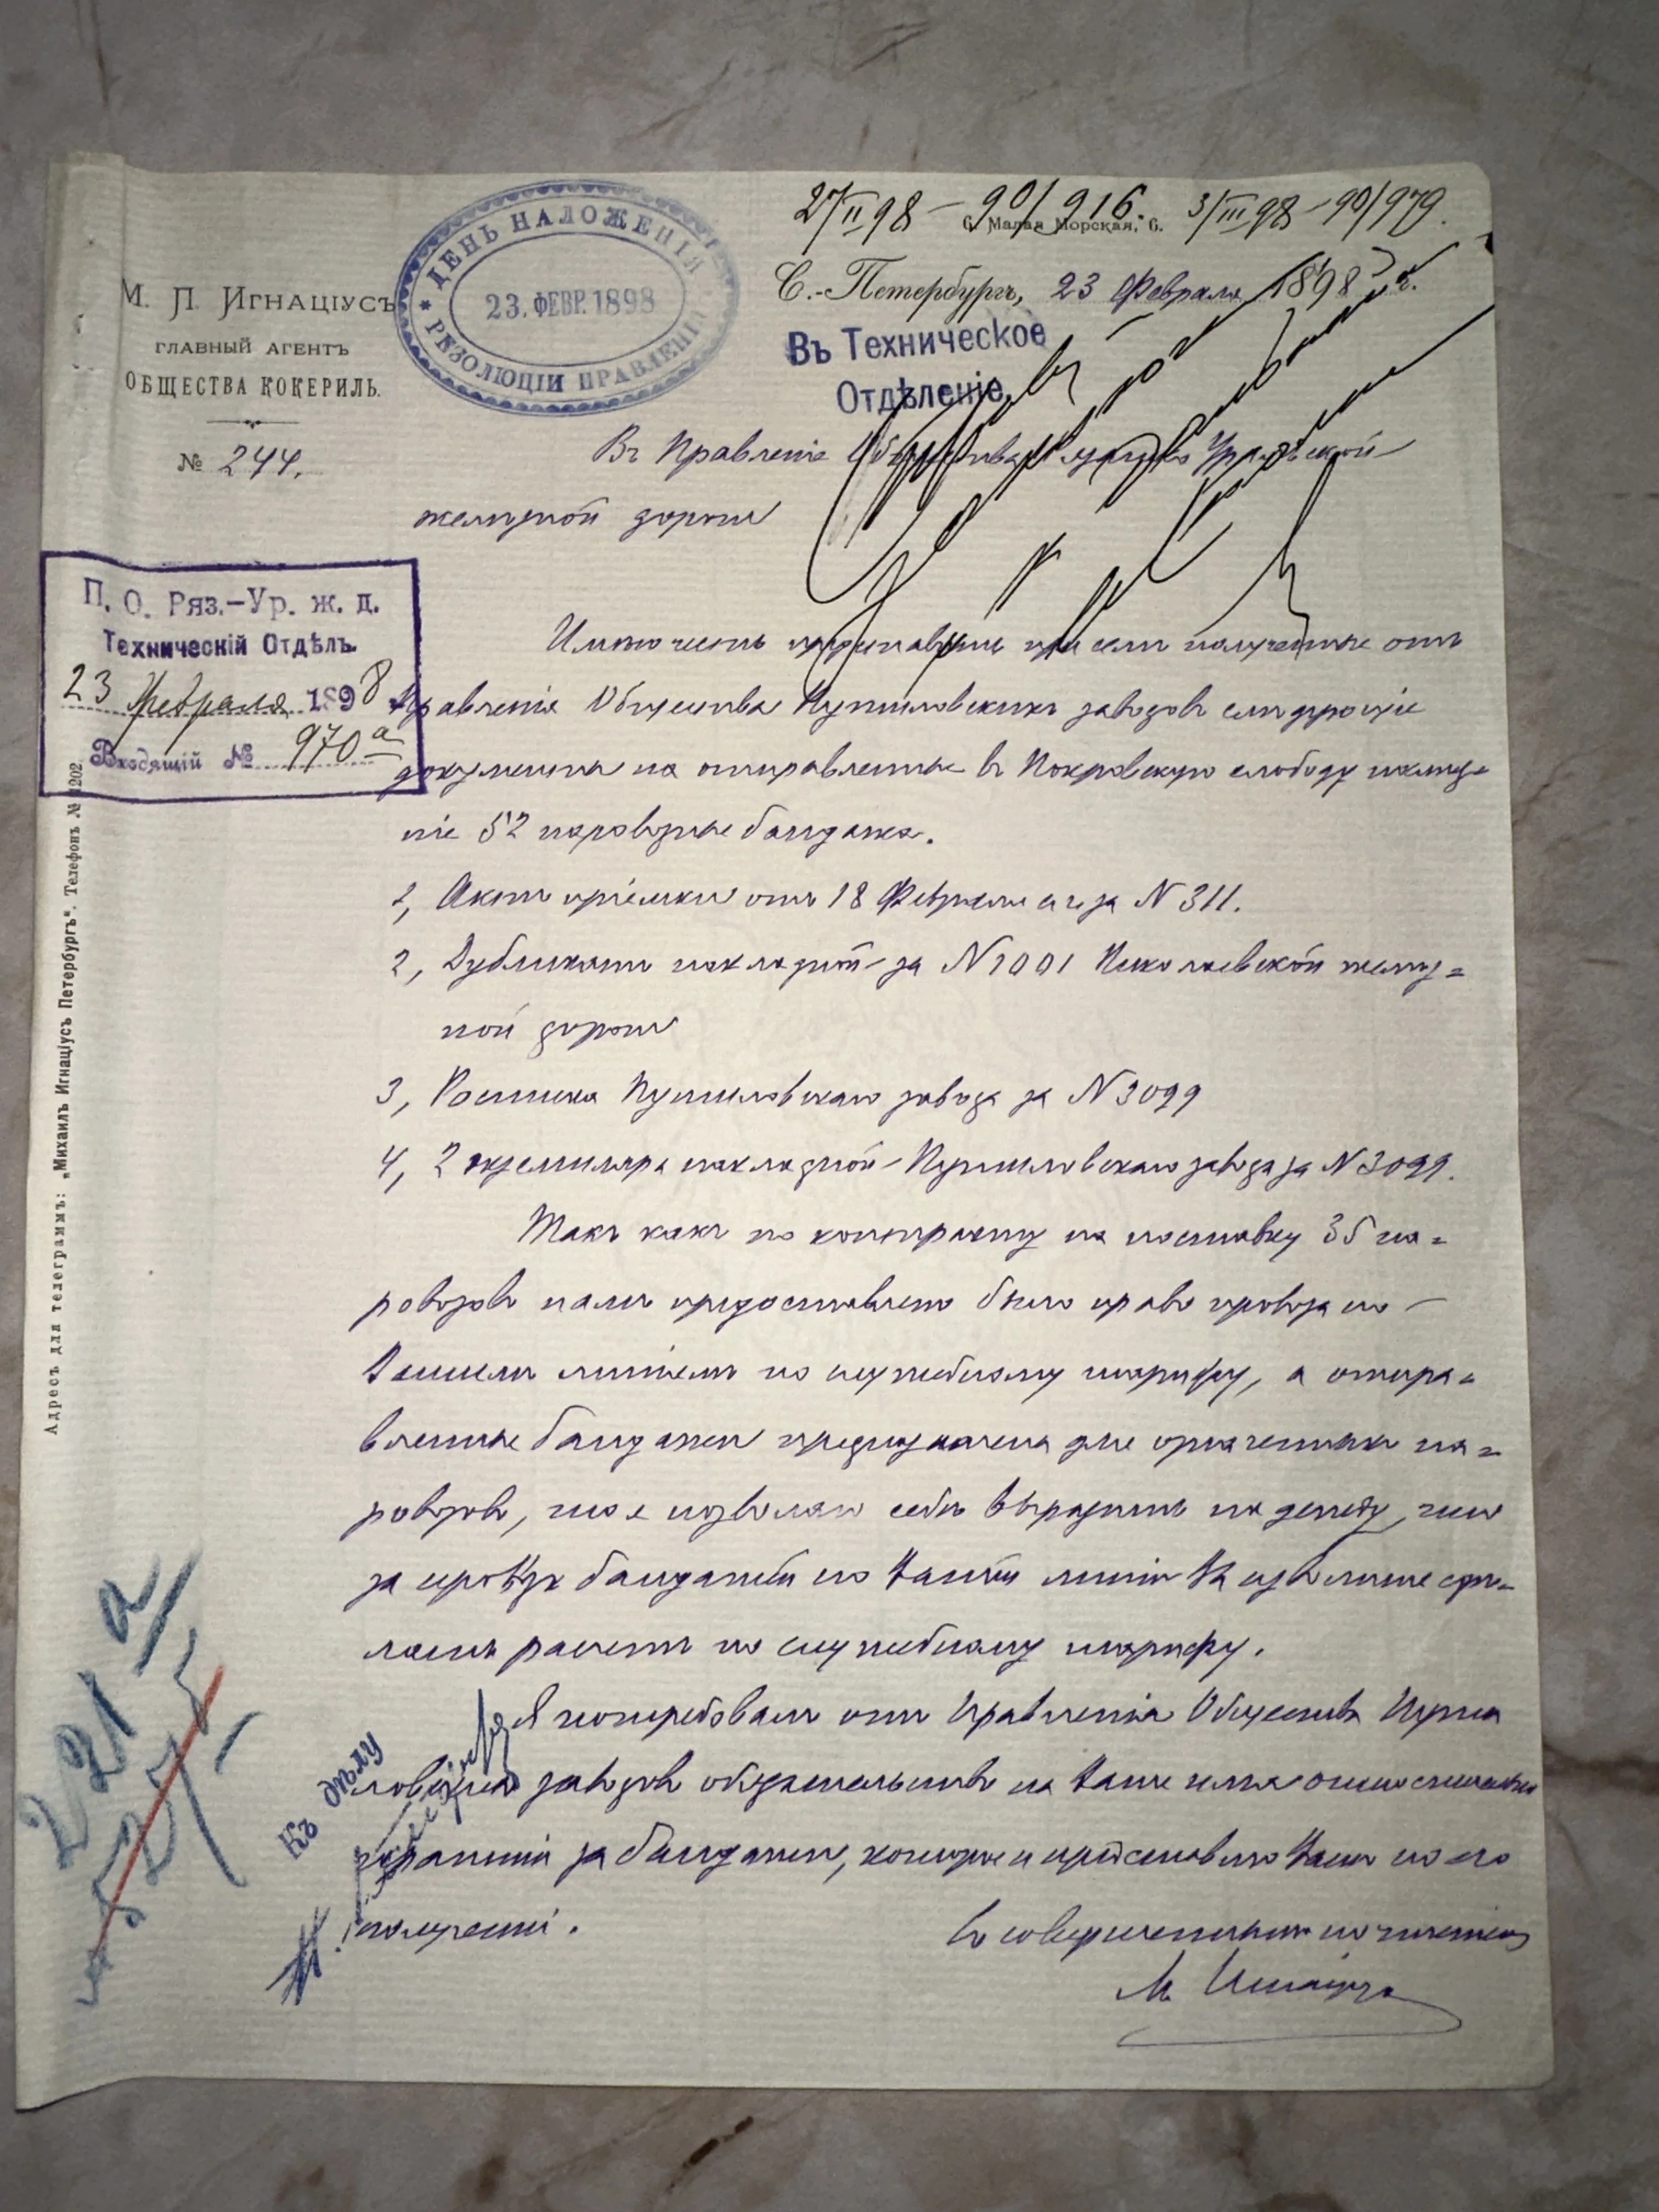 27/II 98 – 90/916. 3/III 98 – 90/979.
Малая Морская, 6.
С.-Петербургъ, 23 Февраля 1898 г.
М. П. Игнаціусъ
ГЛАВНЫЙ АГЕНТЪ
ОБЩЕСТВА КОКЕРИЛЬ.
№ 244.
* ДЕНЬ НАЛОЖЕНІЯ * РЕЗОЛЮЦІИ ПРАВЛЕНІЯ
23. ФЕВР. 1898
Въ Техническое
Отдѣленіе
Въ Правленіе Общества Рязанско Уральской
желѣзной дороги
П. О. Ряз.-Ур. ж. д.
Техническій Отдѣлъ.
23 февраля 1898
Входящій № 970а
Имѣю честь препроводить при семъ полученные отъ
Правленія Общества Путиловскихъ заводовъ слѣдующіе
документы на отправленные въ Покровскую слободу
52 паровозные бандажа.
1, Актъ пріемки отъ 18 Февраля с г за N 311.
2, Дубликатъ накладной за N 1001 Николаевской желѣз=
ной дороги
3, Росписка Путиловскаго завода за N 3099
4, 2 экземпляра накладной Путиловскаго завода за N 3099.
Такъ какъ по контракту на поставку 35 па=
ровозовъ намъ предоставлено было право провоза по
Вашимъ линіямъ по служебному тарифу, а отпра=
вленные бандажи предназначены для означенныхъ па=
ровозовъ, то я позволяю себѣ выразить надежду, что
за провозъ бандажей по Вашей линіи Вы изволите сдѣ=
лать расчетъ по служебному тарифу.
Я потребовалъ отъ Правленія Общества Пути
ловскихъ заводовъ обязательство на Ваше имя относительно
гарантіи за бандажи, которое и представлю Вамъ по его
полученіи.
Съ совершеннымъ почтеніемъ
М Игнаціусъ
Къ дѣлу
221 а/
Адресъ для телеграммъ: „Михаилъ Игнаціусъ Петербургъ“. Телефонъ № 1202.